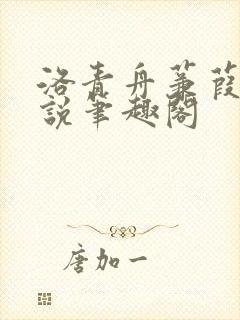 洛青舟蒹葭
說筆趣閣
唐加一